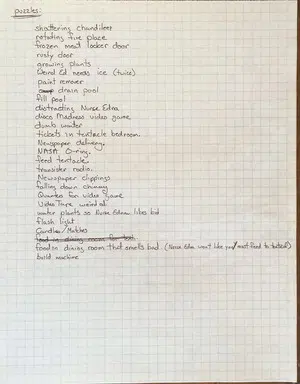 puzzles:
shattering chandilier
rotating fire place
frozen meat locker door
rusty door
growing plants
Dead Ed needs ice (twice)
paint remover
drain pool
fill pool
distracting Nurse Edna
disco Madness video game
dumb waiter
tickets in tentacle bedroom.
Newspaper delivery.
NASA O-ring.
feed tentacle
transister radio.
Newspaper clippings
falling down chimny
Quarter for video game
Video Tape weird ed
water plants so Nurse Edna likes kid
flash light
Candles/Matches
food in dining room for tent
food in dining room that smells bad. (Nurse Edna won't like you/must feed to tentacle)
build machine